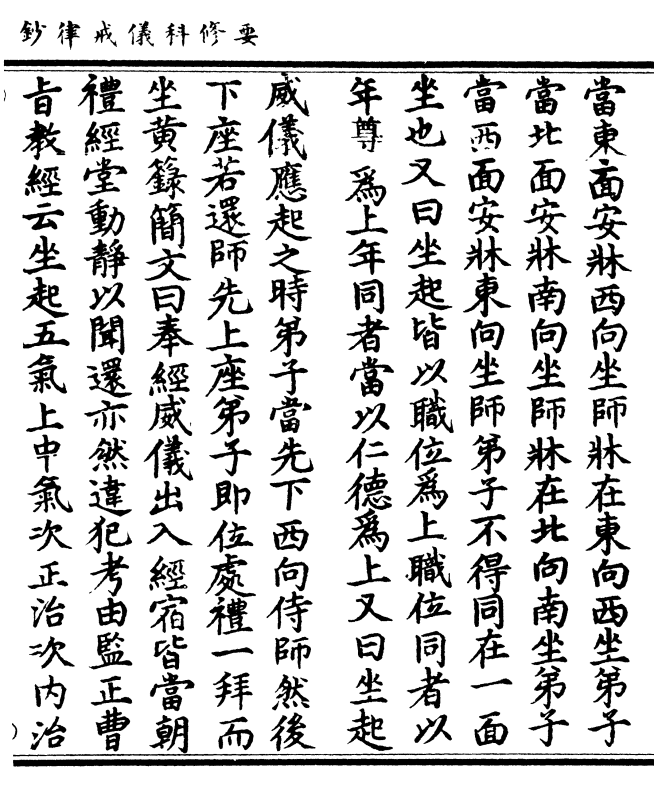 要修科儀戒律鈔
當東面安牀西向坐師牀在東向西坐弟子
當北面安牀南向坐師牀在北向南坐弟子
當西面安牀東向坐師弟子不得同在一面
坐也又曰坐起皆以職位爲上職位同者以
年尊爲上年同者當以仁德爲上又曰坐起
威儀應起之時弟子當先下西向侍師然後
下座若還師先上座弟子即位處禮一拜而
坐黄籙簡文曰奉經威儀出入經宿皆當朝
禮經堂動靜以聞還亦然違犯考由監正曹
旨教經云坐起五氣上中氣次正治次内治